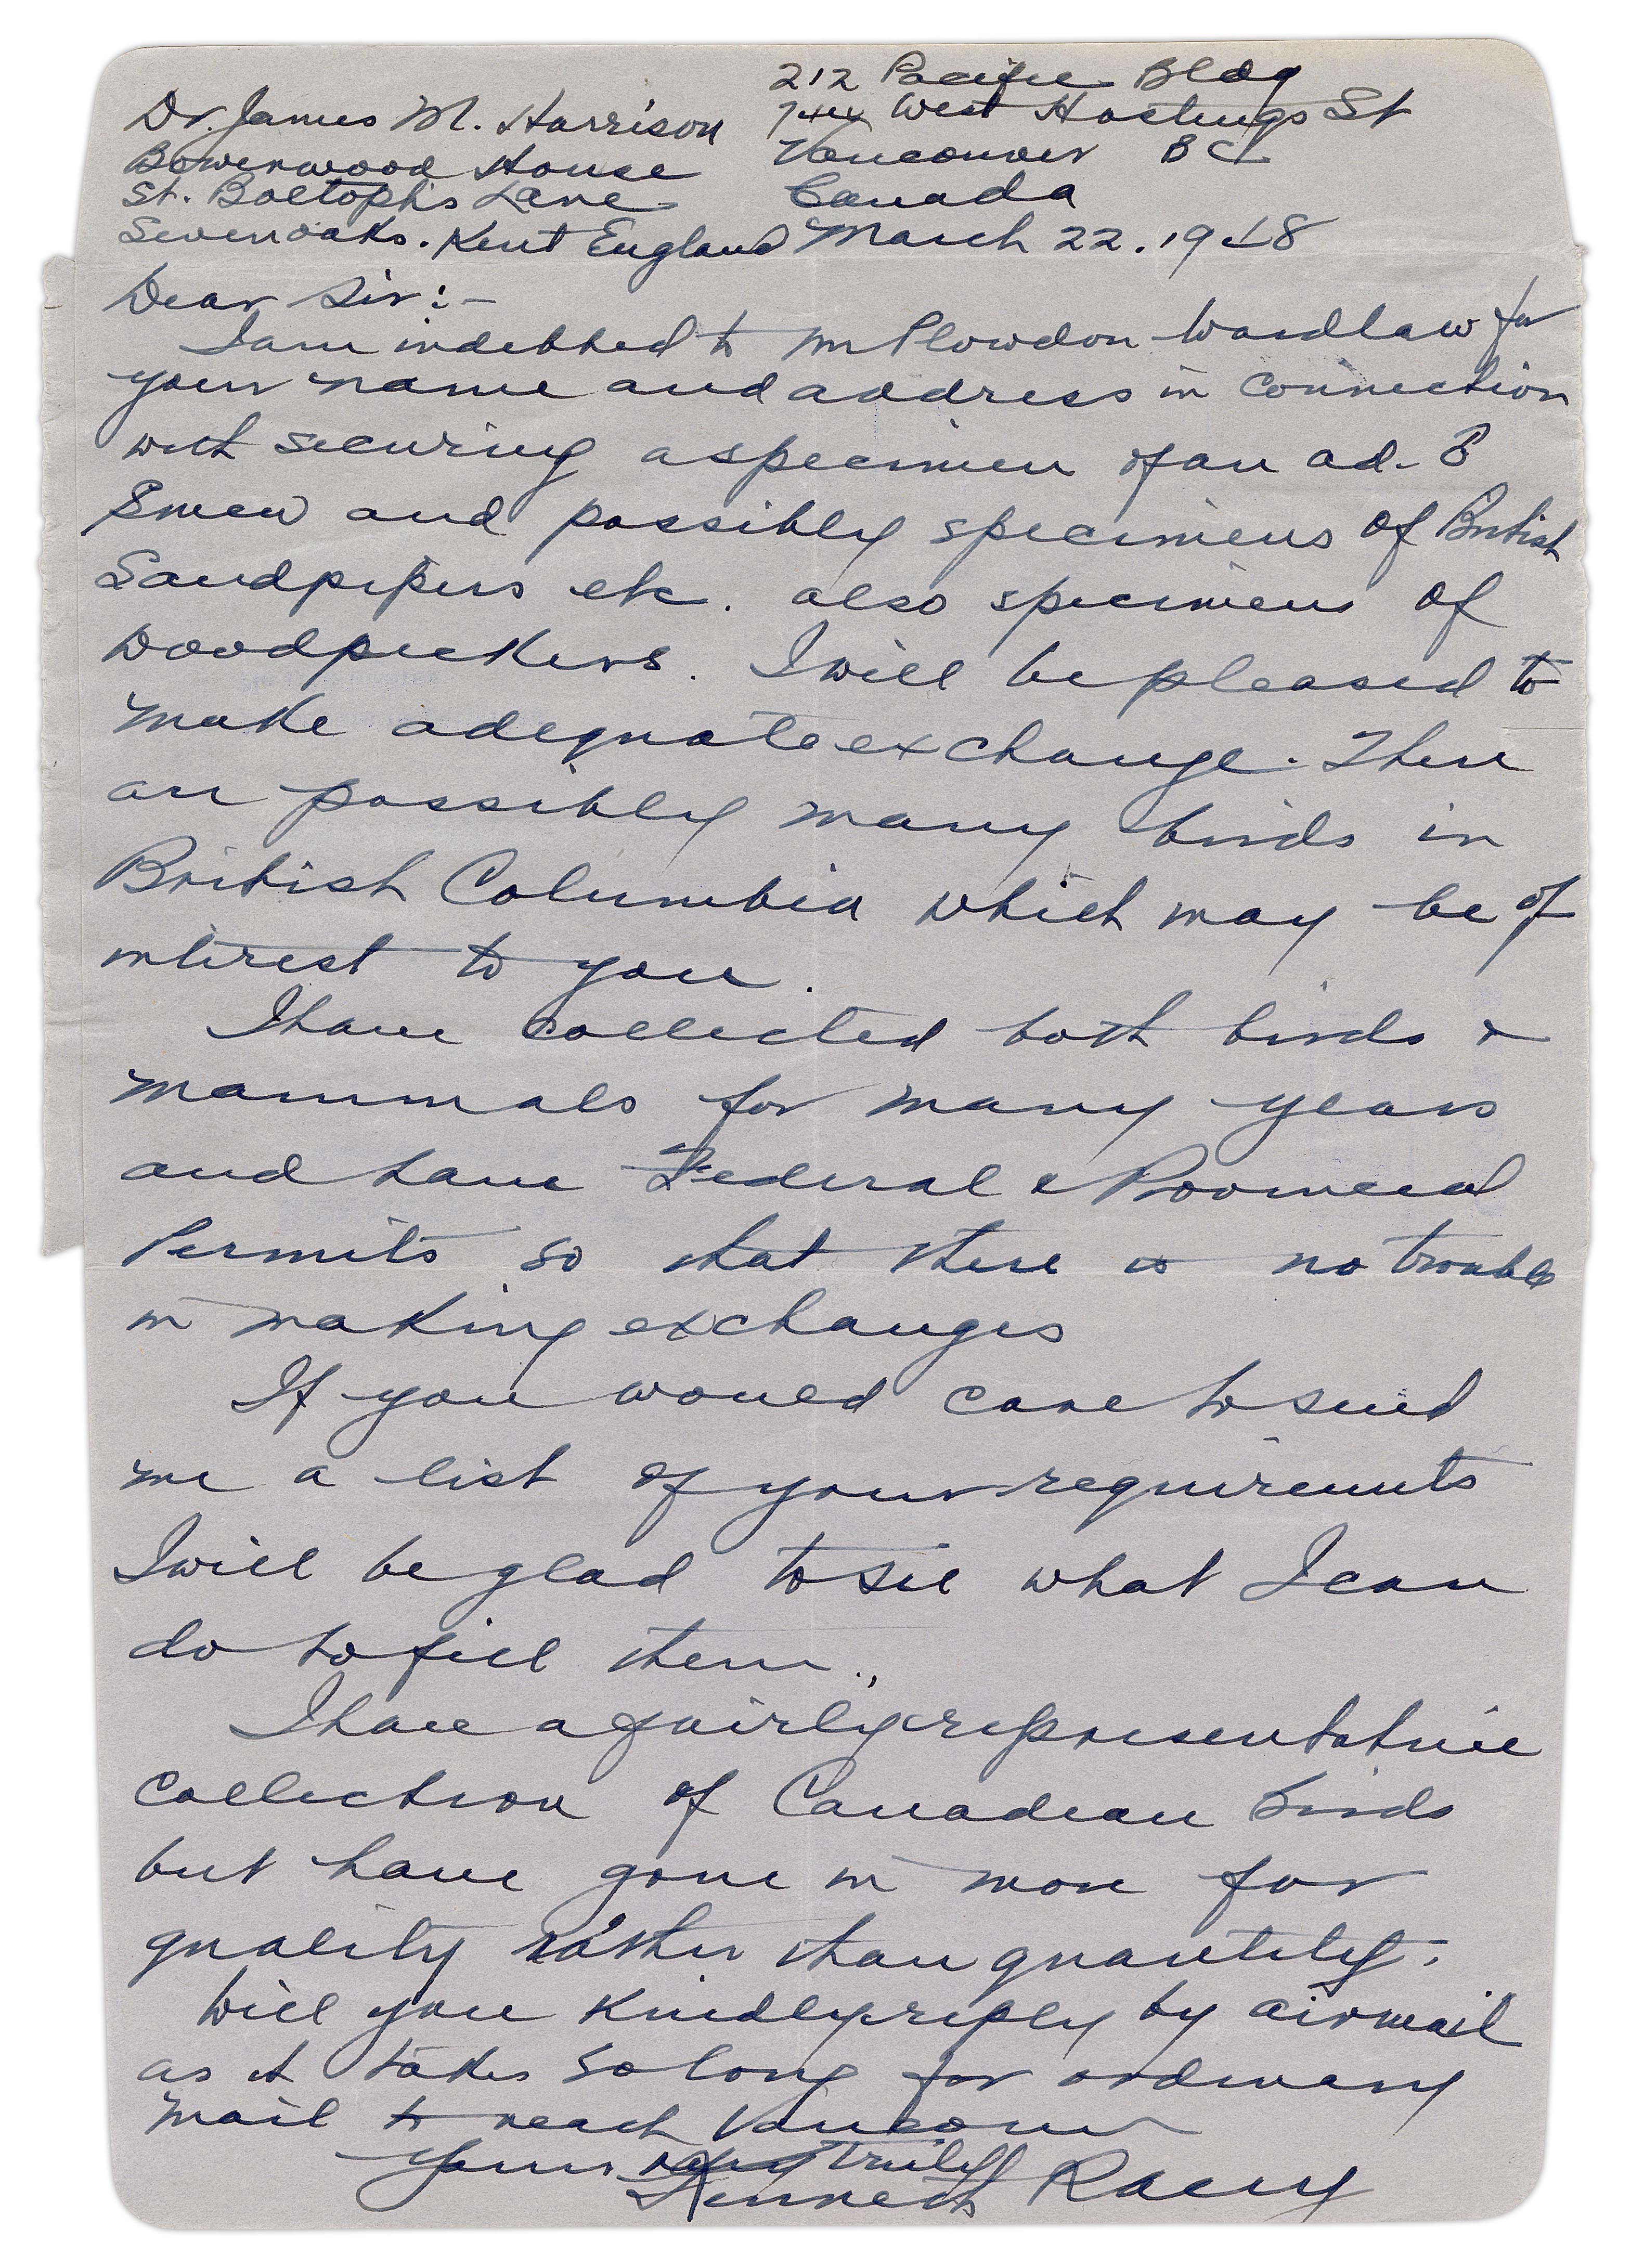 212 Pacific Bldg
744 West Hastings St
Vancouver BC
Canada
March 22. 1948
Dr. James M. Harrison
Bowerwood House
St. Boltoph's Lane
Sevenoaks. Kent England
Dear Sir:-
I am indebted to Mr Plowdon-Wardlaw for
your name and address in connection
with securing a specimen of an ad. ♂
Smew and possibly specimens of British
Sandpipers etc. also specimens of
Woodpeckers. I will be pleased to
make adequate exchange. There
are possibly many birds in
British Columbia which may be of
interest to you.
I have collected both birds &
mammals for many years
and have Federal & Provincial
Permits so that there is no trouble
in making exchanges
If you would care to send
me a list of your requirements
I will be glad to see what I can
do to fill them.
I have a fairly representative
collection of Canadian Birds
but have gone in more for
quality rather than quantity.
Will you kindly reply by airmail
as it takes so long for ordinary
mail to reach Vancouver
Yours very truly
Kenneth Racey